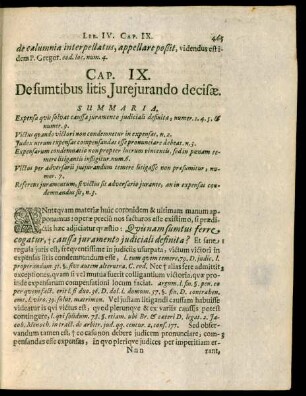 LIB. IV. CAP. IX. 465
de calumnia interpellatus, appellare possit, videndus est i-
dem P. Gregor. eod. loc. num. 4.
CAP. IX.
De sumtibus litis Jurejurando decisæ.
SUMMARIA.
Expensa quis solvat caussa juramento judiciali definita; numer. 2.4.5. &
numer. 9.
Victus quando victori non condemnetur in expensas, n. 2.
Judex utrum expensas compensandas esse pronunciare debeat. n. 5.
Expensarum condemnatio non propter lucrum vincentis, sed in pœnam te-
mere litigantis infligitur. num 6.
Victus per adversarii jusjurandum temere litigasse non præsumitur, nu-
mer. 7.
Referens juramentum, si victus sit adversario jurante, an in expensas con-
demnandus sit, n. 3.
ANtequam materiæ huic coronidem & ultimam manum ap-
ponamus: operæ precii nos facturos esse existimo, si prædi-
ctis hæc adjiciatur quæstio: Quinam sumtus ferre
cogatur, † caussa juramento judiciali definita? Et sane,
regula juris est in frequentissime in judiciis usurpata, victum victori in
expensis condemnandum esse, l. eum quem temere, 79. D. judic. l.
properandum. 13. §. sive autem alterutra, C. eod. Nec † alias fere admittit
exceptionem, quam si vel mutuis petitionibus actum fuerit: quo casu pro-
pride expensarum compensationi locum faciat. argum. l. fin. §. pen. co-
per quem fact. erit. si dos. 36. D. dol. l. domum. 17. §. fin. D. contrahen.
emt. l. viro. 39. solut. matrimon. Vel justam litigandi caussam habuisse
videatur is qui victus est, quod plerunque & ex variis caussis potest
contingere, l. qui solidum. 78. §. etiam. ubi Br. & cæteri D. legat. 2. Ja-
cob. Menoch. in tract. de arbitr. jud. qq. centur. 2. cas. 177. Sed obser-
vandum tamen est, † caussam non debere judicem pronunciare, com-
pensandas esse expensas; in quo plerique judices per imperitiam er-
Nnn
rant,